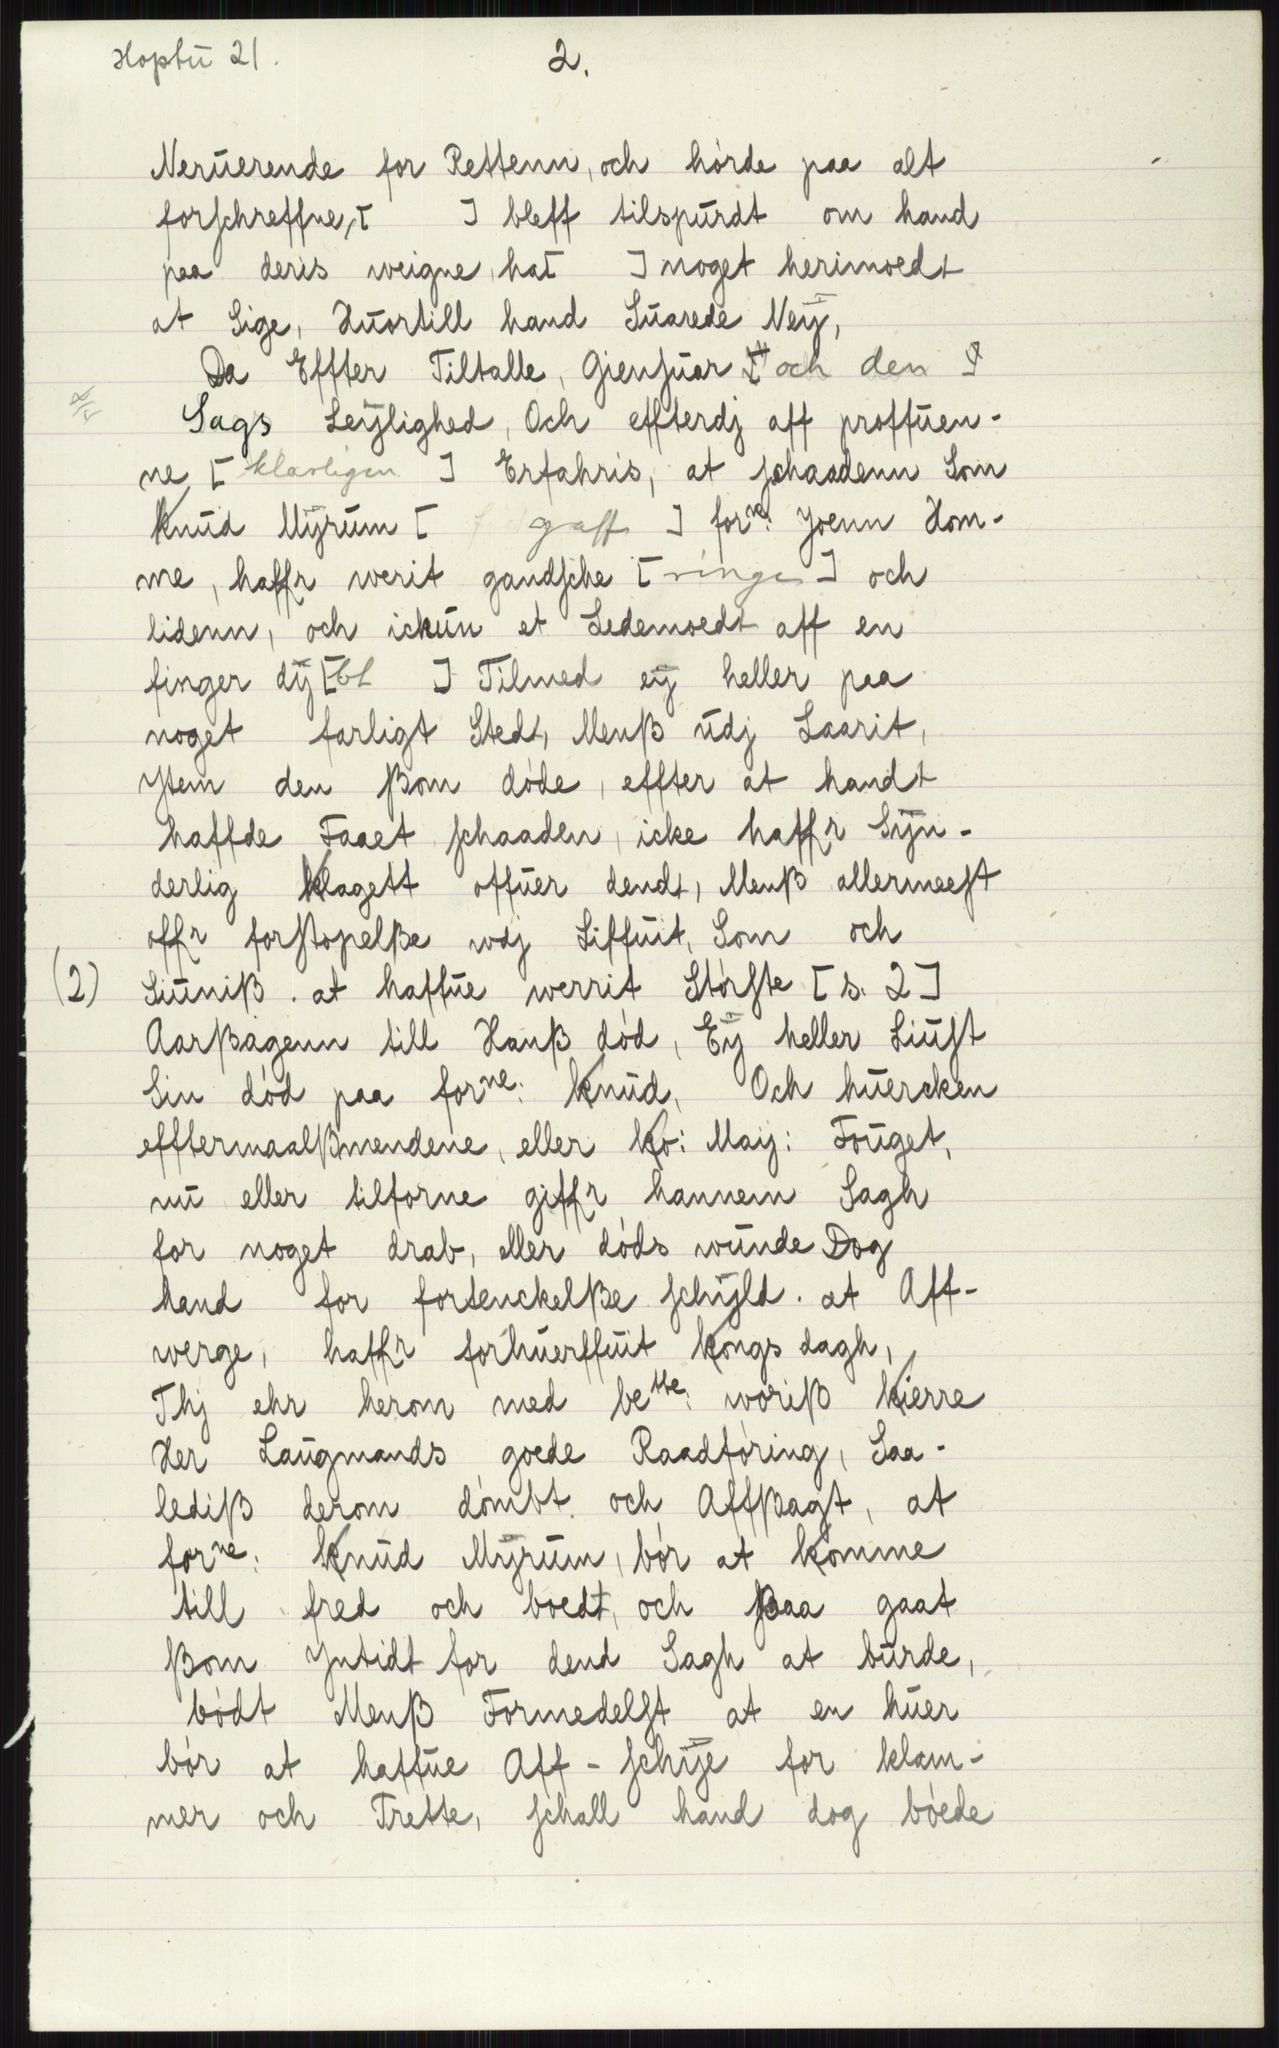 Hoptu 21.
2.
Neruerende for Rettenn, och hörde paa alt
forschreffne, [ ] bleff tilspurdt om hand
paa deris weigne, ha[ ] noget herimoedt
at Sige, Huortill hand Suarede Neÿ,
Da Effter Tiltalle, Giensuar [ och den ]
Sags Leÿlighed, Och effterdj aff proffuen-
ne, [ klarligen ] Erfahris, at schaadenn Som
Knud Mÿrum [ gaff ] forne: Joenn Hom-
me, haffr werit gandsche [ ringe ] och
lidenn, och ickun et Ledemoedt aff en
finger dÿ[bt ] Tilmed eÿ heller paa
noget farligt Stedt, Menß udj Laarit,
Jtem den ßom döde, effter at handt
haffde Faaet schaaden, icke haffr Sÿn-
derlig klagett offuer dendt, Menß allermeest
offr forstopelße wdj Liffuit, Som och
(2) Siuniß. at haffue werrit Störste [s. 2]
Aarßagenn till Hanß död, Eÿ heller Liust
Sin död paa forne: Knud, Och huercken
efftermaalßmendene, eller ko: Maÿ: Fouget,
nu eller tilforne giffr hannem Sagh
for noget drab, eller döds wunde Dog
hand for fortenckelße schÿld. at Aff-
werge, haffr forhuerffuit kongs dagh,
Thj ehr herom med bette: woriß kierre
Her Laugmands goede Raadföring, Saa-
lediß derom dömbt och Affßagt, at
forne: Knud Mÿrum, bör at komme
till fred och boedt, och ßaa gaat
ßom Jntidt for dend Sagh at burde,
bödt Menß Formedelst at en huer
bör at haffue Aff-schÿe for klam-
mer och Trette, schall hand dog böede